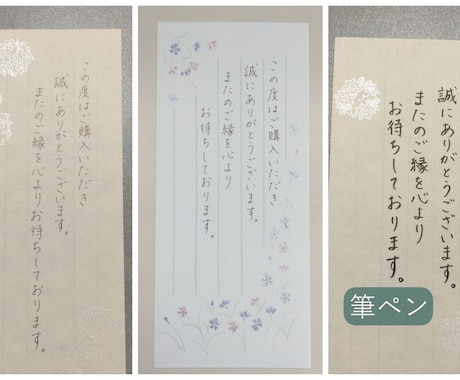 この度はご購入いただき
誠にありがとうございます。
またのご縁を心よりお待ちしております。
この度はご購入いただき
誠にありがとうございます。
またのご縁を心より
お待ちしております。
誠にありがとうございます。
またのご縁を心より
お待ちしております。
筆ペン